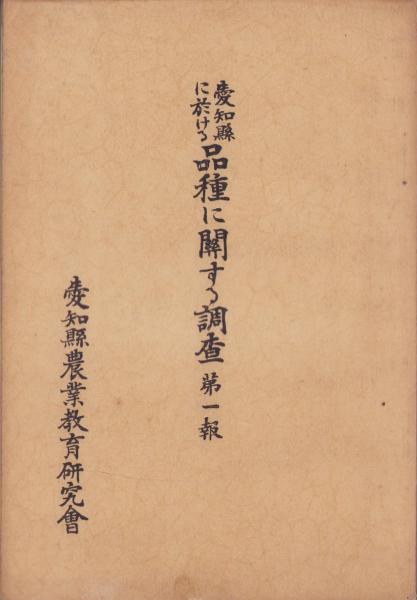 愛知縣
に於ける
品種に關する調査 第一報
愛知縣農業教育研究會